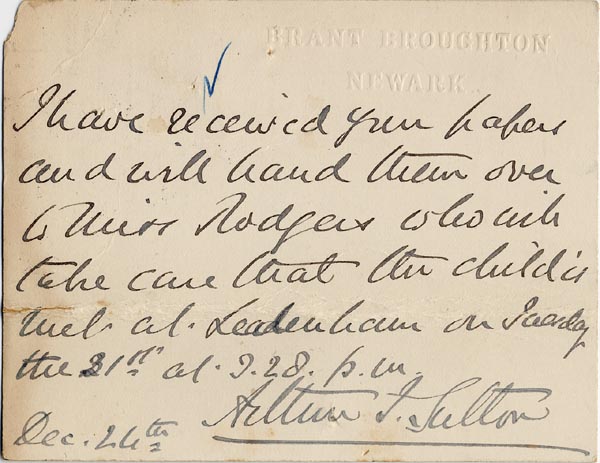 BRANT BROUGHTON
NEWARK.
I have received your papers
and will hand them over
to Miss Rodgers who will
take care that the child is
met at Leadenham on Tuesday
the 31st at 3.28. p.m.
Arthur F. Sutton
Dec. 24th